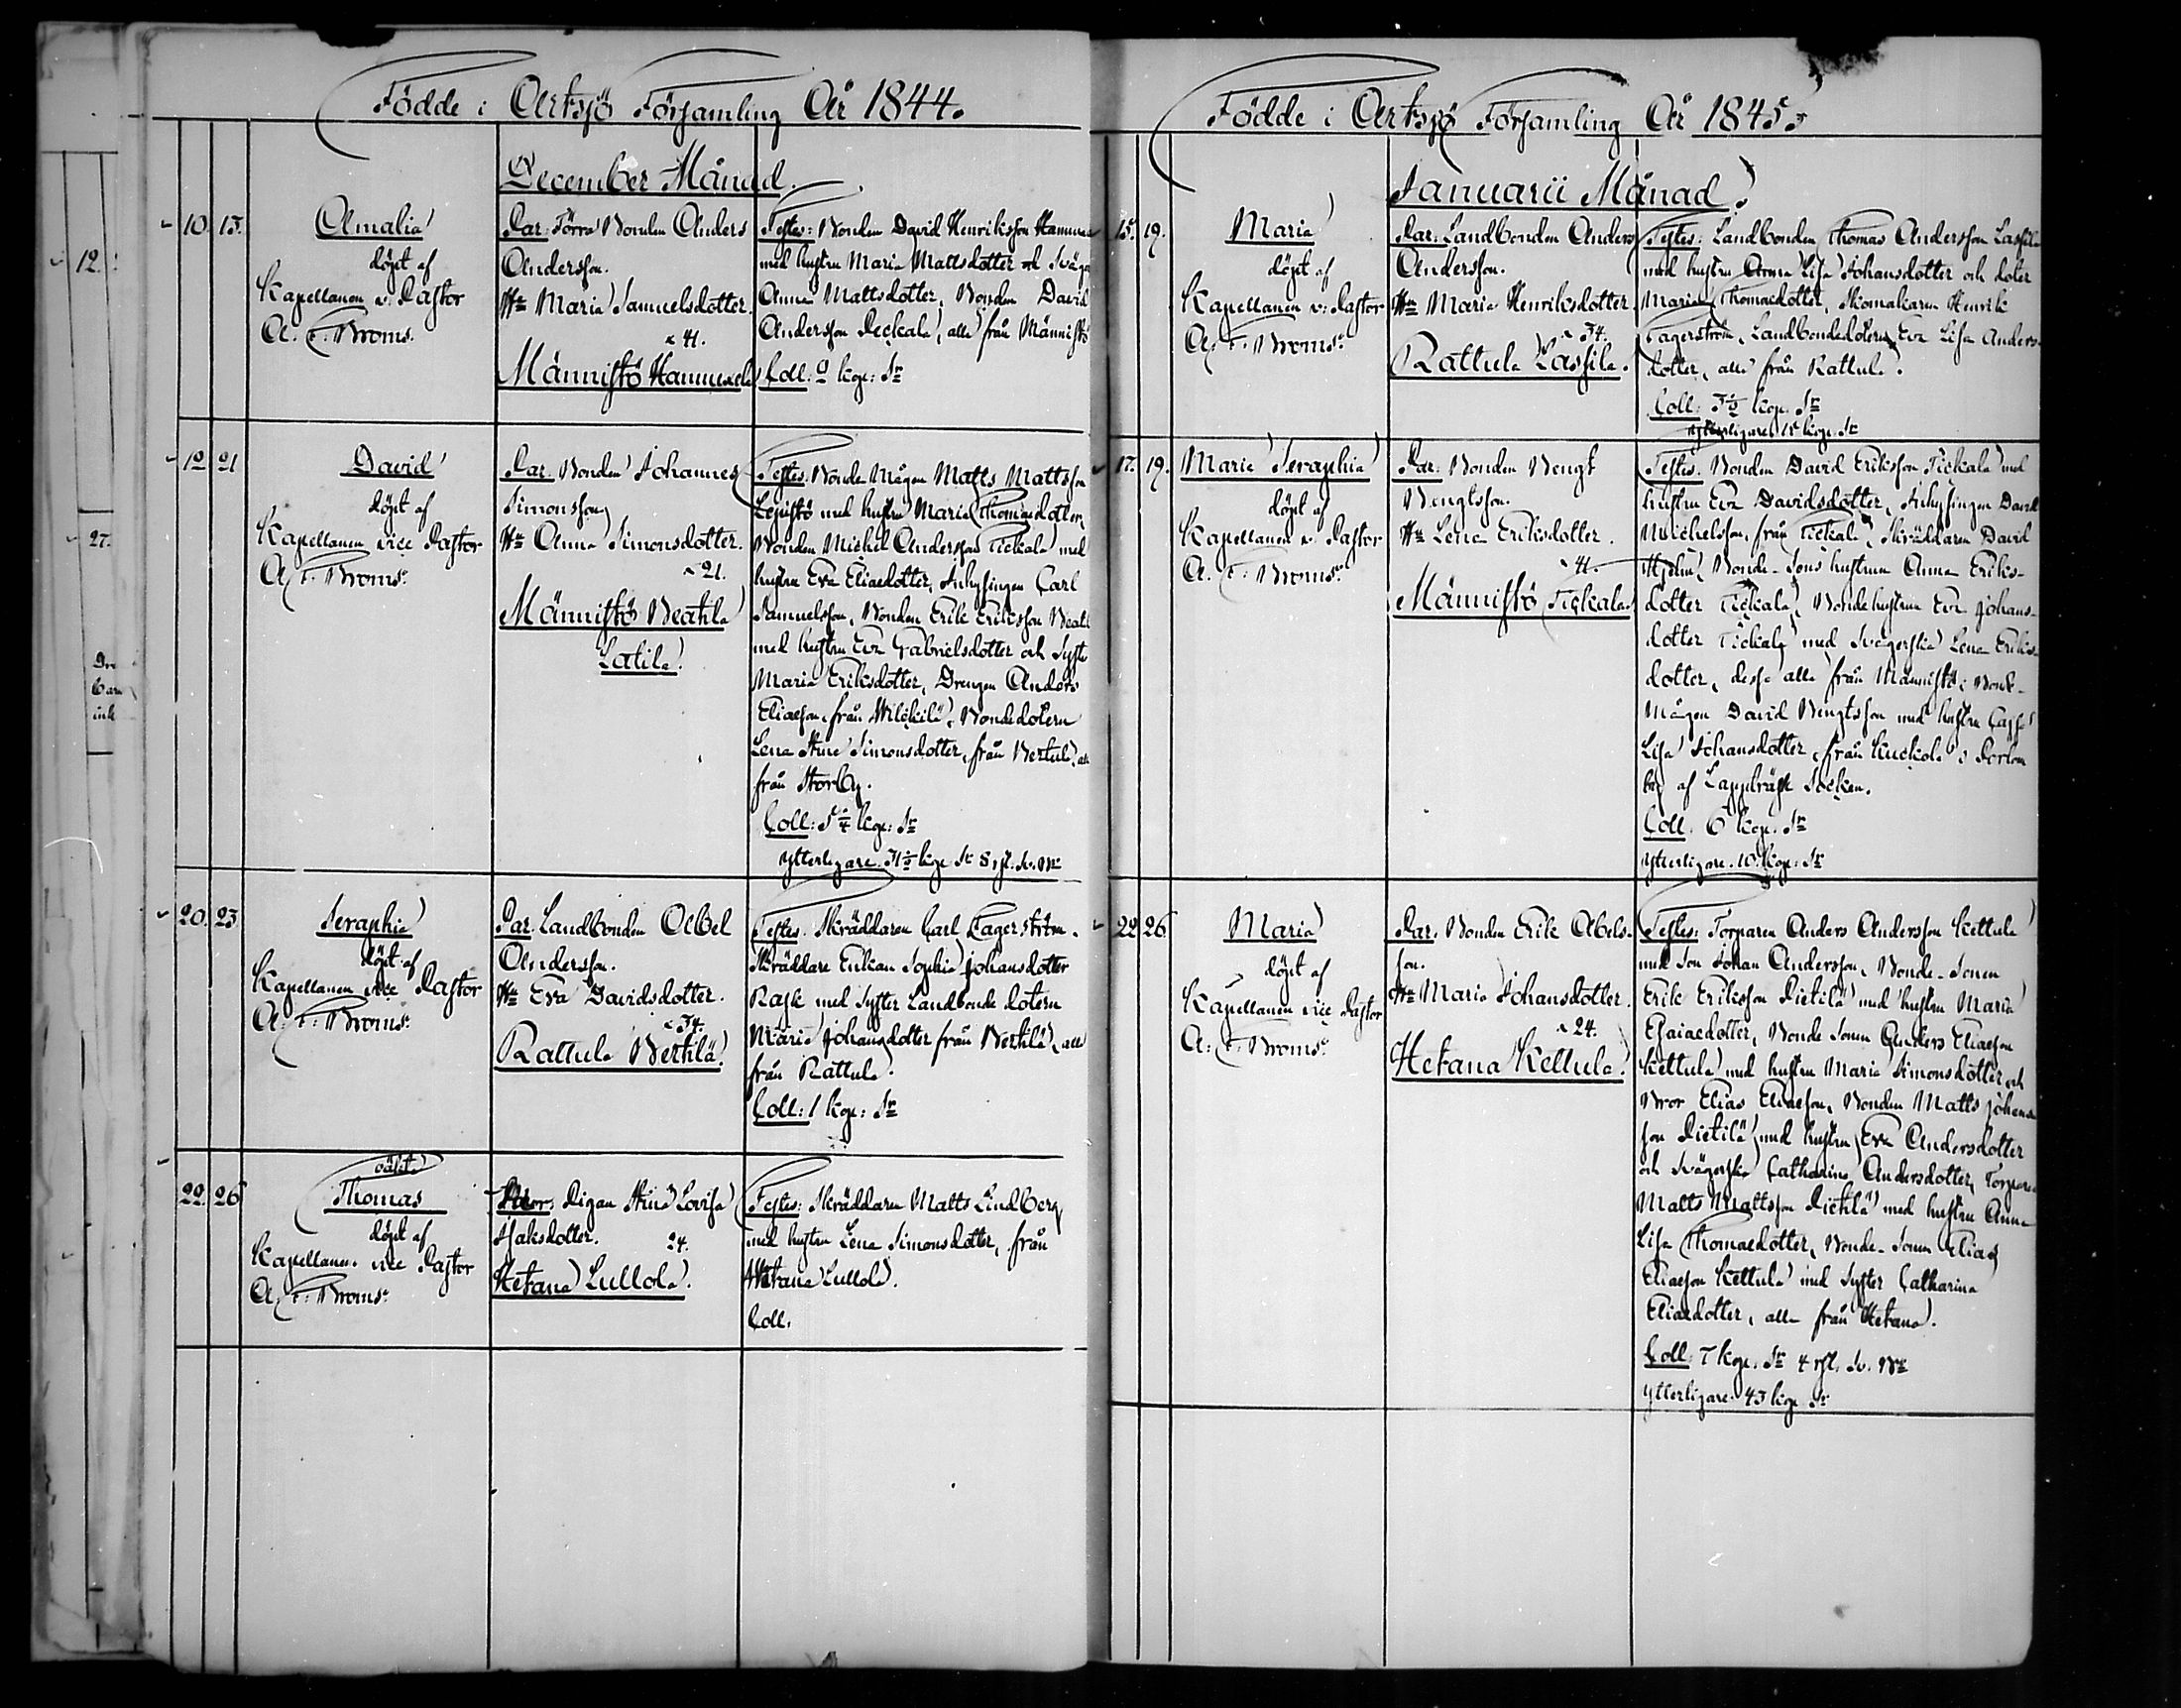 Födde i Artsjö Församling År 1844.
December Månad.
10. 13.
Amalia
döpt af
Kapellanen v. Pastor
A. F. Broms.
Par: Förra Bonden Anders
Andersson.
Hu Maria Samuelsdotter.
41.
Männistö Hammar
Testes: Bonden David Henriksson
med hustru Maria Mattsdotter och
Anna Mattsdotter, Bonden David
Andersson Peckala, alla från Männistö
Coll: 2 kop: Sr
12 21
David
döpt af
Kapellanen vice Pastor
A. F. Broms.
Par. Bonden Johannes
Simonsson
Hu Anna Simonsdotter.
21.
Männistö Beatila
Latila.
Testes. Bonde Mågen Matts Mattsson
med hustru Maria Thomaedotter,
Bonden Michel Andersson Tickala med
hustru Eva Eliaedotter, Inhysingen Carl
Samuelsson, Bonden Erik Eriksson
med hustru Eva Gabrielsdotter och
Maria Eriksdotter, Drengen Anders
Eliaeson från Wilckilä, Bondedotern
Lena Stina Simonsdotter, från
från Storby.
Coll: kop: Sr
Ytterligare. kop Sr 8
20. 23
Seraphia
döpt af
Kapellanen vice Pastor
A. F. Broms.
Par. Landbonden Abel
Andersson.
Hu Eva Davidsdotter.
34.
Rattula Bertilä.
Testes. Skräddaren Carl Lagerström.
Skräddare Enkan Sophia Johansdotter
Rask med Syster Landbonde dotern
Maria Johansdotter från Bertilä, alla
från Rattula.
Coll: 1 kop: Sr
22. 26
oäkta
Thomas
döpt af
Kapellanen vice Pastor
A. F. Broms.
Mor. Pigan Stina Lovisa
Isaksdotter. 24.
Hetana Lullola.
Testes: Skräddaren Matts Lindberg
med hustru Lena Simonsdotter, från
Hetana Lullola.
Coll.
Födde i Artsjö Församling År 1845.
Januarii Månad.
15. 19.
Maria
döpt af
Kapellanen v. Pastor
A. F. Broms.
Par. Landbonden Anders
Andersson.
Hu Maria Henriksdotter.
34.
Rattula Lassila.
Testes: Landbonden Thomas Andersson Lassila
med hustru Anna Lisa Johansdotter och doter
Maria Thomaedotter, Skomakaren Henrik
Fagerström, Landbondedotern Eva Lisa Anders-
dotter, alla från Rattula.
Coll: kop. Sr
Ytterligare 15 kop. Sr
17. 19.
Maria Seraphia
döpt af
Kapellanen v. Pastor
A. F. Broms.
Par: Bonden Bengt
Bengtsson.
Hu Lena Eriksdotter.
41.
Männistö Tickala.
Testes. Bonden David Eriksson Tickala med
hustru Eva Davidsdotter, Inhysingen David
Michelsson, från Tickala, Skräddaren David
Hjelm, Bonde-Sons hustrun Anna Eriks-
dotter Tickala, Bondehustrun Eva Johans-
dotter Tickala med Svägerska Lena Eriks-
dotter, dessa alla från Männistö; Bonde-
Mågen David Bengtsson med hustru Caisa
Lisa Johansdotter, från Kuckola
by af Lappträsk Socken.
Coll. 6 kop. Sr
Ytterligare. 10 kop: Sr
22 26
Maria
döpt af
Kapellanen vice Pastor
A. F. Broms.
Par. Bonden Erik Abels-
son.
Hu Maria Johansdotter.
24.
Hetana Kettula.
Testes: Torparen Anders Andersson Kettula
med Son Johan Andersson, Bonde-Sonen
Erik Eriksson Pietilä med hustru Maria
Esaiaedotter, Bonde Sonen Anders Eliaeson
Kettula med hustru Maria Simonsdotter och
Bror Elias Eliaeson, Bonden Matts Johans-
son Pietilä med hustru Eva Andersdotter
och Svägerska Catharina Andersdotter, Torparen
Matts Mattsson Pietilä med hustru Anna
Lisa Thomaedotter, Bonde-Sonen Elias
Eliaeson Kettula med Syster Catharina
Eliaedotter, alla från Hetana.
Coll: 7 kop. Sr 4
Ytterligare. 43 kop Sr
12.
27.